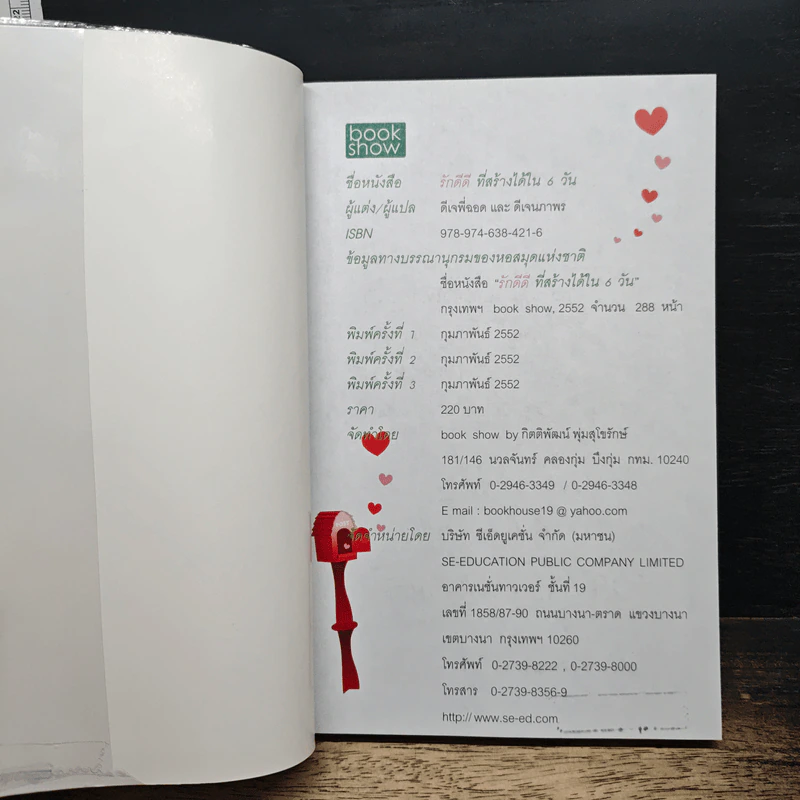 book
show
ชื่อหนังสือ รักดีดี ที่สร้างได้ใน 6 วัน
ผู้แต่ง/ผู้แปล ดีเจพี่อ้อย และ ดีเจนภาพร
ISBN 978-974-638-421-6
ข้อมูลทางบรรณานุกรมของหอสมุดแห่งชาติ
ชื่อหนังสือ "รักดีดี ที่สร้างได้ใน 6 วัน"
กรุงเทพฯ book show, 2552 จำนวน 288 หน้า
พิมพ์ครั้งที่ 1 กุมภาพันธ์ 2552
พิมพ์ครั้งที่ 2 กุมภาพันธ์ 2552
พิมพ์ครั้งที่ 3 กุมภาพันธ์ 2552
ราคา 220 บาท
จัดทำโดย book show by กิตติพัฒน์ พุ่มสุโขรักษ์
181/146 นวลจันทร์ คลองกุ่ม บึงกุ่ม กทม. 10240
โทรศัพท์ 0-2946-3349 / 0-2946-3348
E mail : bookhouse19 @ yahoo.com
จัดจำหน่ายโดย บริษัท ซีเอ็ดยูเคชั่น จำกัด (มหาชน)
SE-EDUCATION PUBLIC COMPANY LIMITED
อาคารเนชั่นทาวเวอร์ ชั้นที่ 19
เลขที่ 1858/87-90 ถนนบางนา-ตราด แขวงบางนา
เขตบางนา กรุงเทพฯ 10260
โทรศัพท์ 0-2739-8222 , 0-2739-8000
โทรสาร 0-2739-8356-9
http:// www.se-ed.com